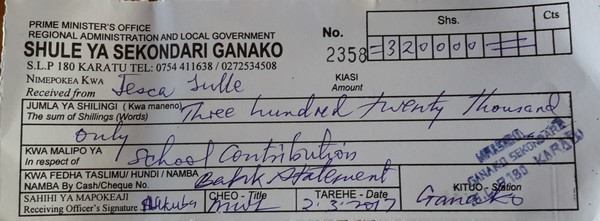 PRIME MINISTER'S OFFICE
REGIONAL ADMINISTRATION AND LOCAL GOVERNMENT
SHULE YA SEKONDARI GANAKO
S.L.P 180 KARATU TEL: 0754 411638 / 0272534508
No. 2358
Shs. Cts
=320000=
NIMEPOKEA KWA
Received from Jesca Sulle
KIASI
Amount
JUMLA YA SHILINGI (Kwa maneno) Three hundred twenty thousand
The sum of Shillings (Words)
only
KWA MALIPO YA School Contribution
In respect of
KWA FEDHA TASLIMU/ HUNDI / NAMBA Bank Statement
NAMBA By Cash/Cheque No.
SAHIHI YA MAPOKEAJI CHEO - Title TAREHE - Date KITUO - Station
Receiving Officer's Signature 2.3.2017 Ganako
GANAKO SEKONDARI
180 KARATU